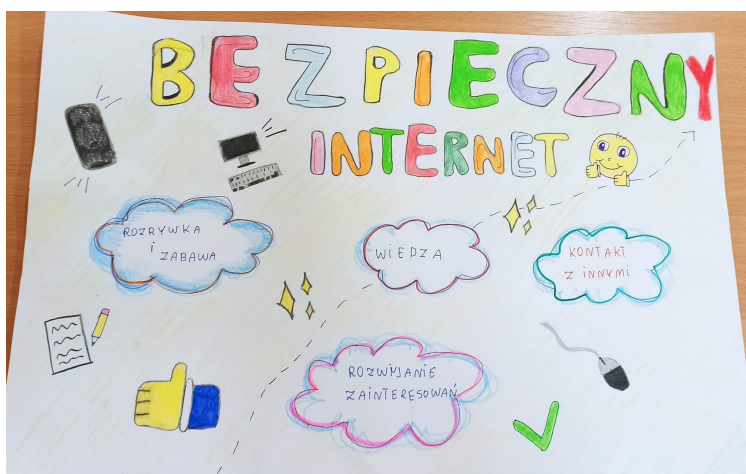 BEZPIECZNY
INTERNET
ROZRYWKA
i
ZABAWA
WIEDZA
KONTAKT
Z iNNYMi
ROZWIJANiE
ZAiNTERESOWAŃ